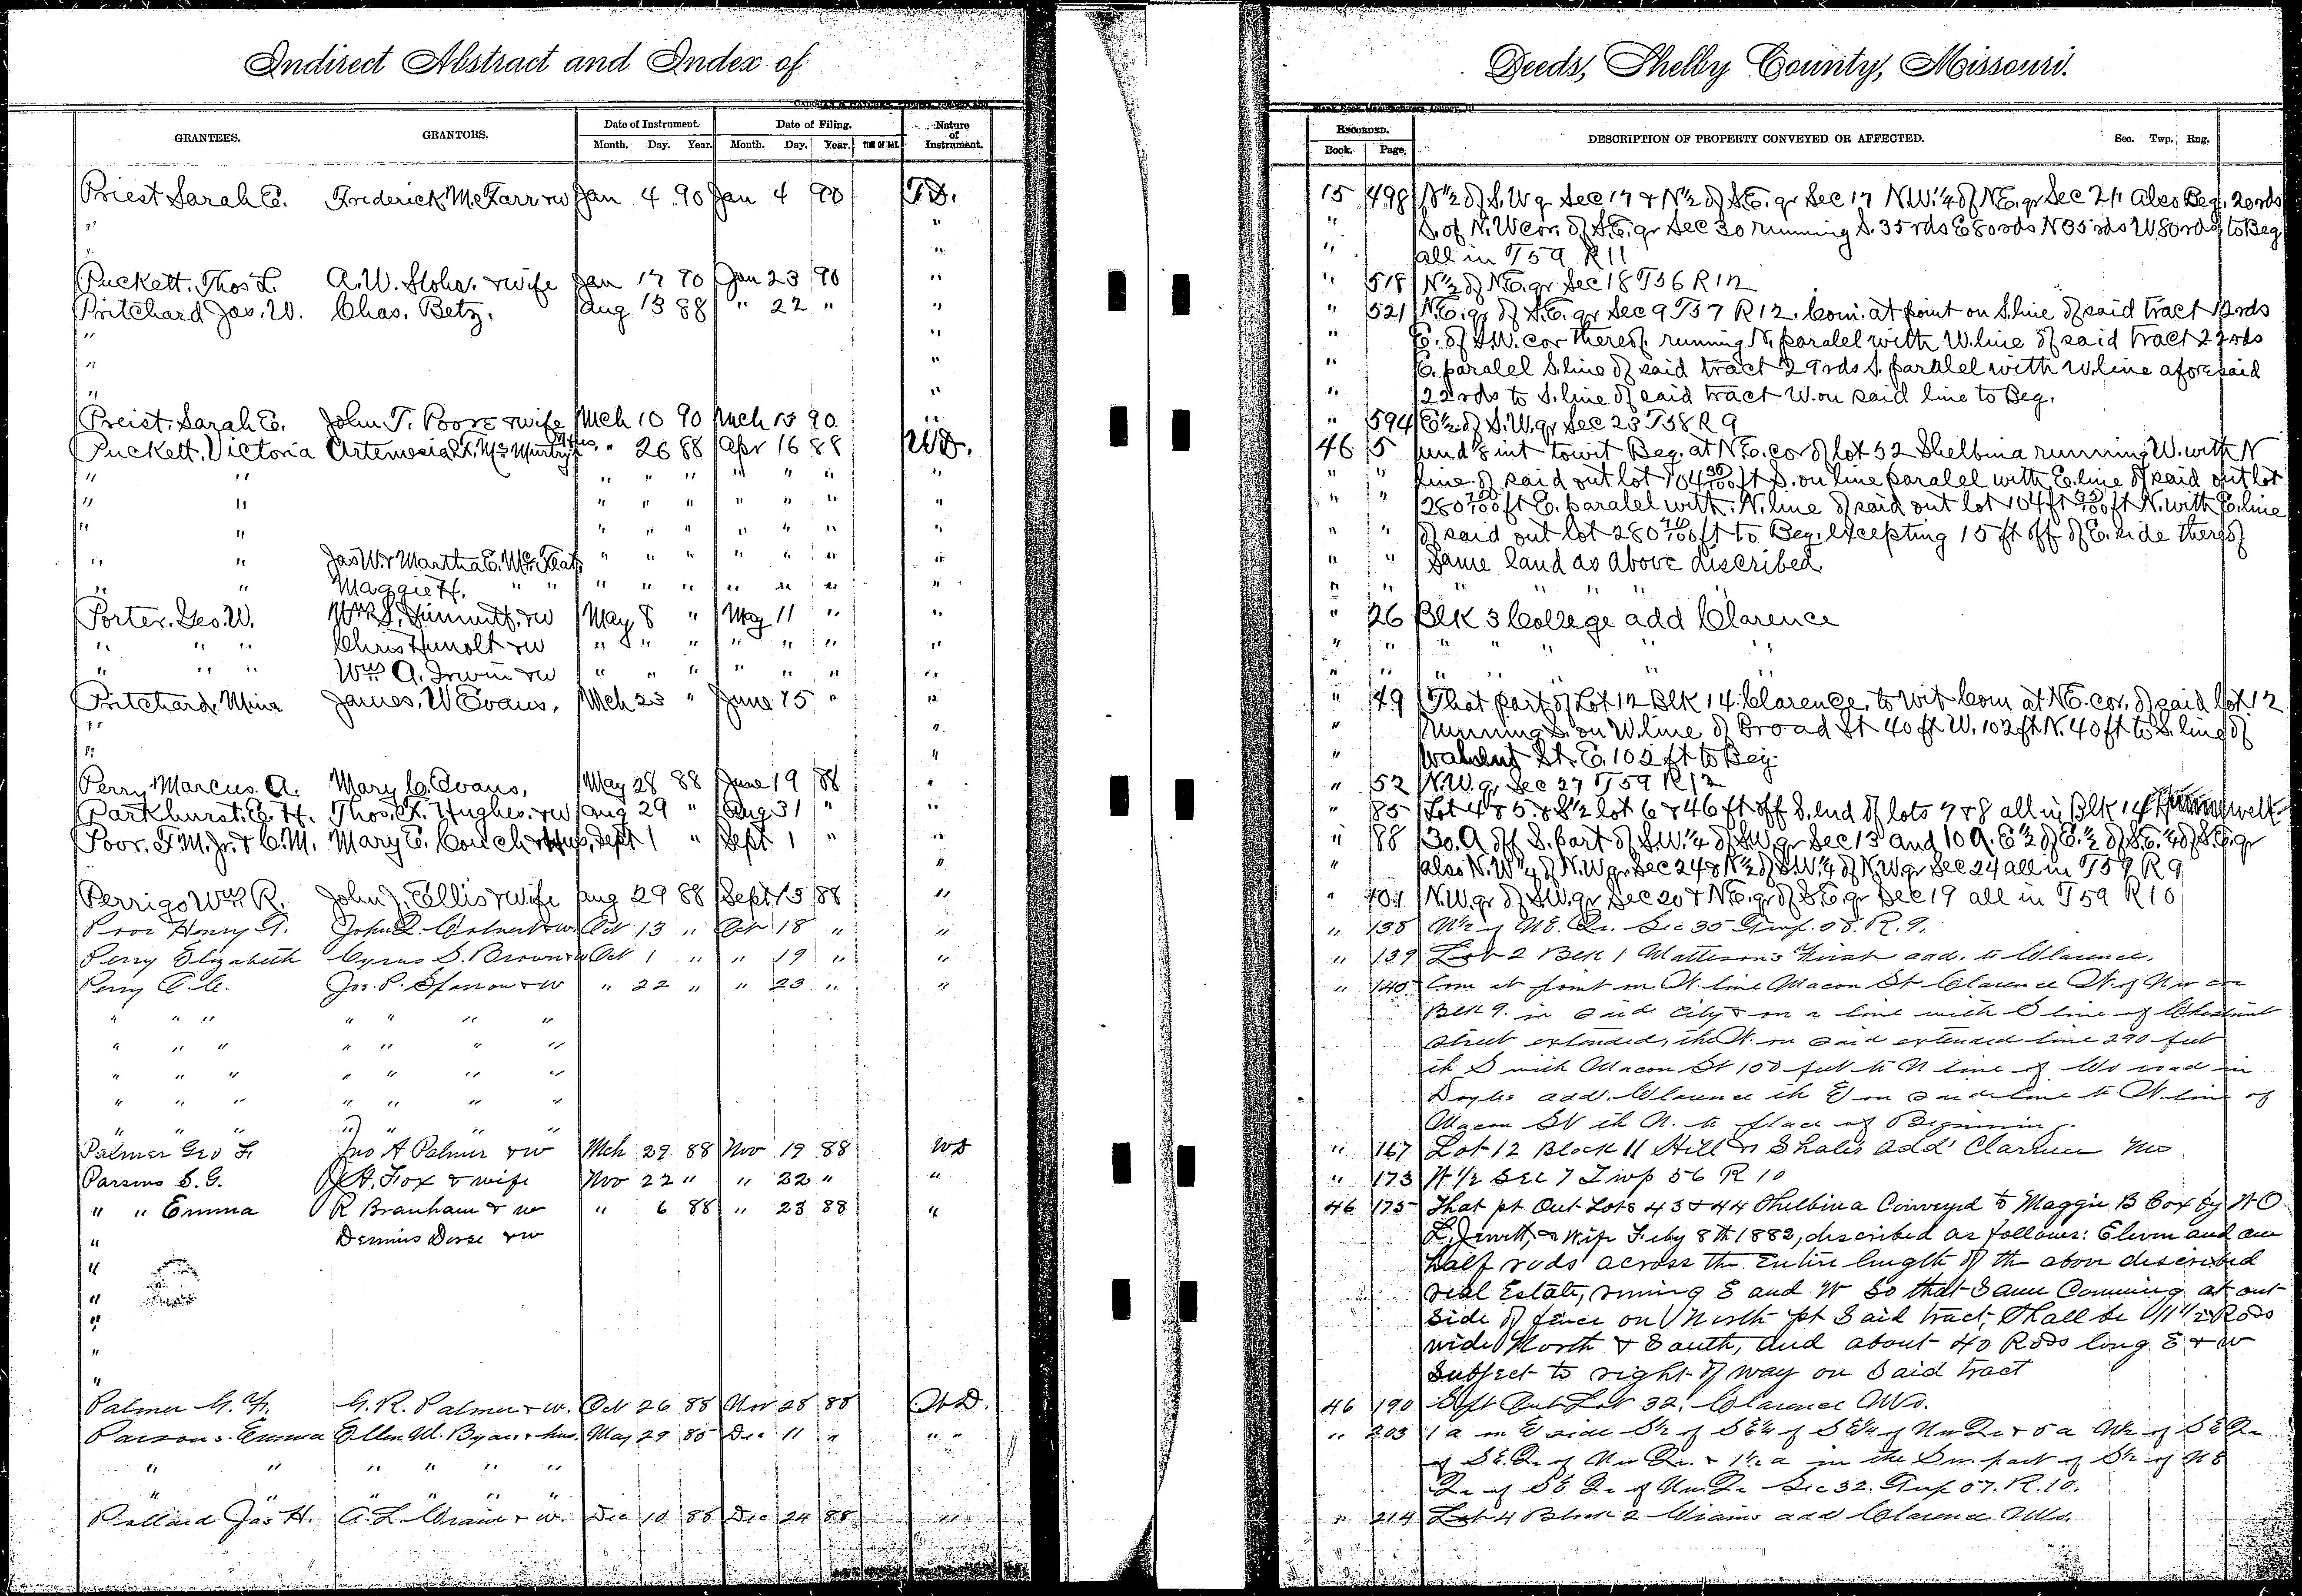 Indirect Abstract and Index of
Deeds, Shelby County, Missouri.
GRANTEES. GRANTORS. Date of Instrument. Date of Filing. Nature of Instrument.
Month. Day. Year. Month. Day. Year. TIME OF DAY.
RECORDED. DESCRIPTION OF PROPERTY CONVEYED OR AFFECTED. Sec. Twp. Rng.
Book. Page.
Priest Sarah E. Frederick McFarr & w Jan 4 90 Jan 4 90 T.D. 15 498 N½ of S.W qr Sec 17 & N½ of S.E. qr Sec 17 N.W.¼ of N.E. qr Sec 21 Also Beg. 20 rds
" " " S. of N.W cor. of S.E. qr Sec 30 running S. 35 rds E 80 rds N 35 rds W. 80 rds to Beg
" " " all in T59 R11
Puckett. Thos L. A.W. & wife Jan 17 90 Jan 23 90 " " 518 N½ of N.E. qr Sec 18 T56 R12
Pritchard Jas. W. Chas. Betz. Aug 13 88 " 22 " " " 521 N.E. qr of S.E. qr Sec 9 T57 R12. Com. at point on S. line of said tract 12 rds
" " " E. of S.W. cor thereof. running N. paralel with W. line of said tract 22 rds
" " " E. paralel S. line of said tract 29 rds S. paralel with W. line aforesaid
" " " 22 rds to S. line of said tract W. on said line to Beg.
Preist. Sarah E. John T. Poore & wife Mch 10 90 Mch 15 90 " " 594 E½ of S.W. qr Sec 23 T58 R9
Puckett. Victoria Artemesia F. McMurtry " 26 88 Apr 16 88 W.D. 46 5 und ⅛ int towit Beg. at N.E. cor of lot 52 Shelbina running W. with N
" " " " " " " " " " " line of said out lot 104 ft S. on line paralel with E. line of said out lot
" " " " " " " " " " " 280 ft E. paralel with N. line of said out lot 104 ft N. with E. line
" " " " " " " " " " " of said out lot 280 ft to Beg. excepting 15 ft off of E. side thereof
" " Jas W. & Martha E. " " " " " " " " " Same land as above discribed
" " Maggie H. " " " " " " " " " " " " " "
Porter. Geo. W. Wm S. & w May 8 " May 11 " " " 26 Blk 3 College add Clarence
" " " Chris Hunolt & w " 8 " " " " " " " " " " "
" " " Wm A. Irwin & w " " " " " " " " " " " "
Pritchard Mina James. W Evans, Mch 23 " June 15 " " " 49 That part of Lot 12 Blk 14 Clarence, to wit Com at N.E. cor. of said lot 12
" " " running S. on W. line of Broad St 40 ft W. 102 ft N. 40 ft to S. line of
" " " Walnut St. E. 102 ft to Beg.
Perry Marcus. A. Mary C. Evans, May 28 88 June 19 88 " " 52 N.W. qr Sec 27 T59 R12
Parkhurst. E. H. Thos. K. Hughes & w Aug 29 " Aug 31 " " " 85 Lot 4 & 5. & S½ lot 6 & 46 ft off S. end of lots 7 & 8 all in Blk 14
Poor. F.M. Jr. & C.M. Mary E. Couch & Hus, Sept 1 " Sept 1 " " " 88 30. A off S. part of S.W.¼ of S.W. qr Sec 13 and 10 A. E½ of E.½ of S.E.¼ of S.E. qr
" " also N.W¼ of N.W qr Sec 24 & N½ of S.W.¼ of N.W. qr Sec 24 all in T59 R9
Perrigo Wm R. John J. Ellis & wife Aug 29 88 Sept 13 88 " " 101 N.W. qr of S.W. qr Sec 20 & N.E. qr of S.E. qr Sec 19 all in T59 R10
Poor Henry A. John & w. Oct 13 " Oct 18 " " " 138 N½ of N.E. Qr. Sec 35 Twp. 58. R. 9.
Perry Elizabeth Cyrus S. Brown & w Oct 1 " " 19 " " " 139 Lot 2 Blk 1 Mattison's First add. to Clarence.
Perry C. C. Jos. P. & w " 22 " " 23 " " " 140 Com at point on W. line Macon St Clarence W. of N.w cor
" " " " " " " Blk 9. in said City & on a line with S line of Chestnut
" " " " " " " street extended, th W. on said extended line 290 feet
" " " " " " " th S with Macon St 100 feet to N line of road in
" " " " " " " Doyles add. Clarence th E on said line to W. line of
" " " " " " " Macon St th N. to place of Beginning.
Palmer Geo F. Jno A Palmer & w Mch 29 88 Nov 19 88 WD " 167 Lot 12 Block 11 Hill & Shales add Clarence Mo
Parsons S. G. H. Fox & wife Nov 22 " " 22 " " " 173 W ½ Sec 7 Twp 56 R 10
" " Emma R Branham & w " 6 88 " 23 88 " 46 175 That pt Out Lots 43 & 44 Shelbina Conveyed to Maggie B Cox by W O
" Dennis Dorse & w L. Jewett, & Wife Feby 8th 1882, described as follows: Eleven and one
" half rods across the Entire length of the above described
" real Estate, runing E and W so that Same Comming at out
" side of fence on North pt Said tract, Shall be 11½ Rods
" wide North & South, and about 40 Rods long E & w
" Subject to right of way on Said tract
Palmer G. F. G. R. Palmer & w. Oct 26 88 Nov 28 88 W.D. 46 190 Out Lot 32, Clarence Mo.
Parsons. Emma Ellen M. Byars & hus. May 29 85 Dec 11 " " " " 203 1 a on E side S½ of SE¼ of SE¼ of Nw Qr & 5 a W½ of SE Qr
" " " " " " of SE. Qr of Nw Qr. & 1½ a in the Sw. part of S½ of NE
" " " " " " Qr of SE Qr of Nw. Qr Sec 32. Twp 57. R. 10.
Pollard Jas H. A. L. & w. Dec 10 88 Dec 24 88 " " " 214 Lot 4 Block 2 add Clarence Mo.